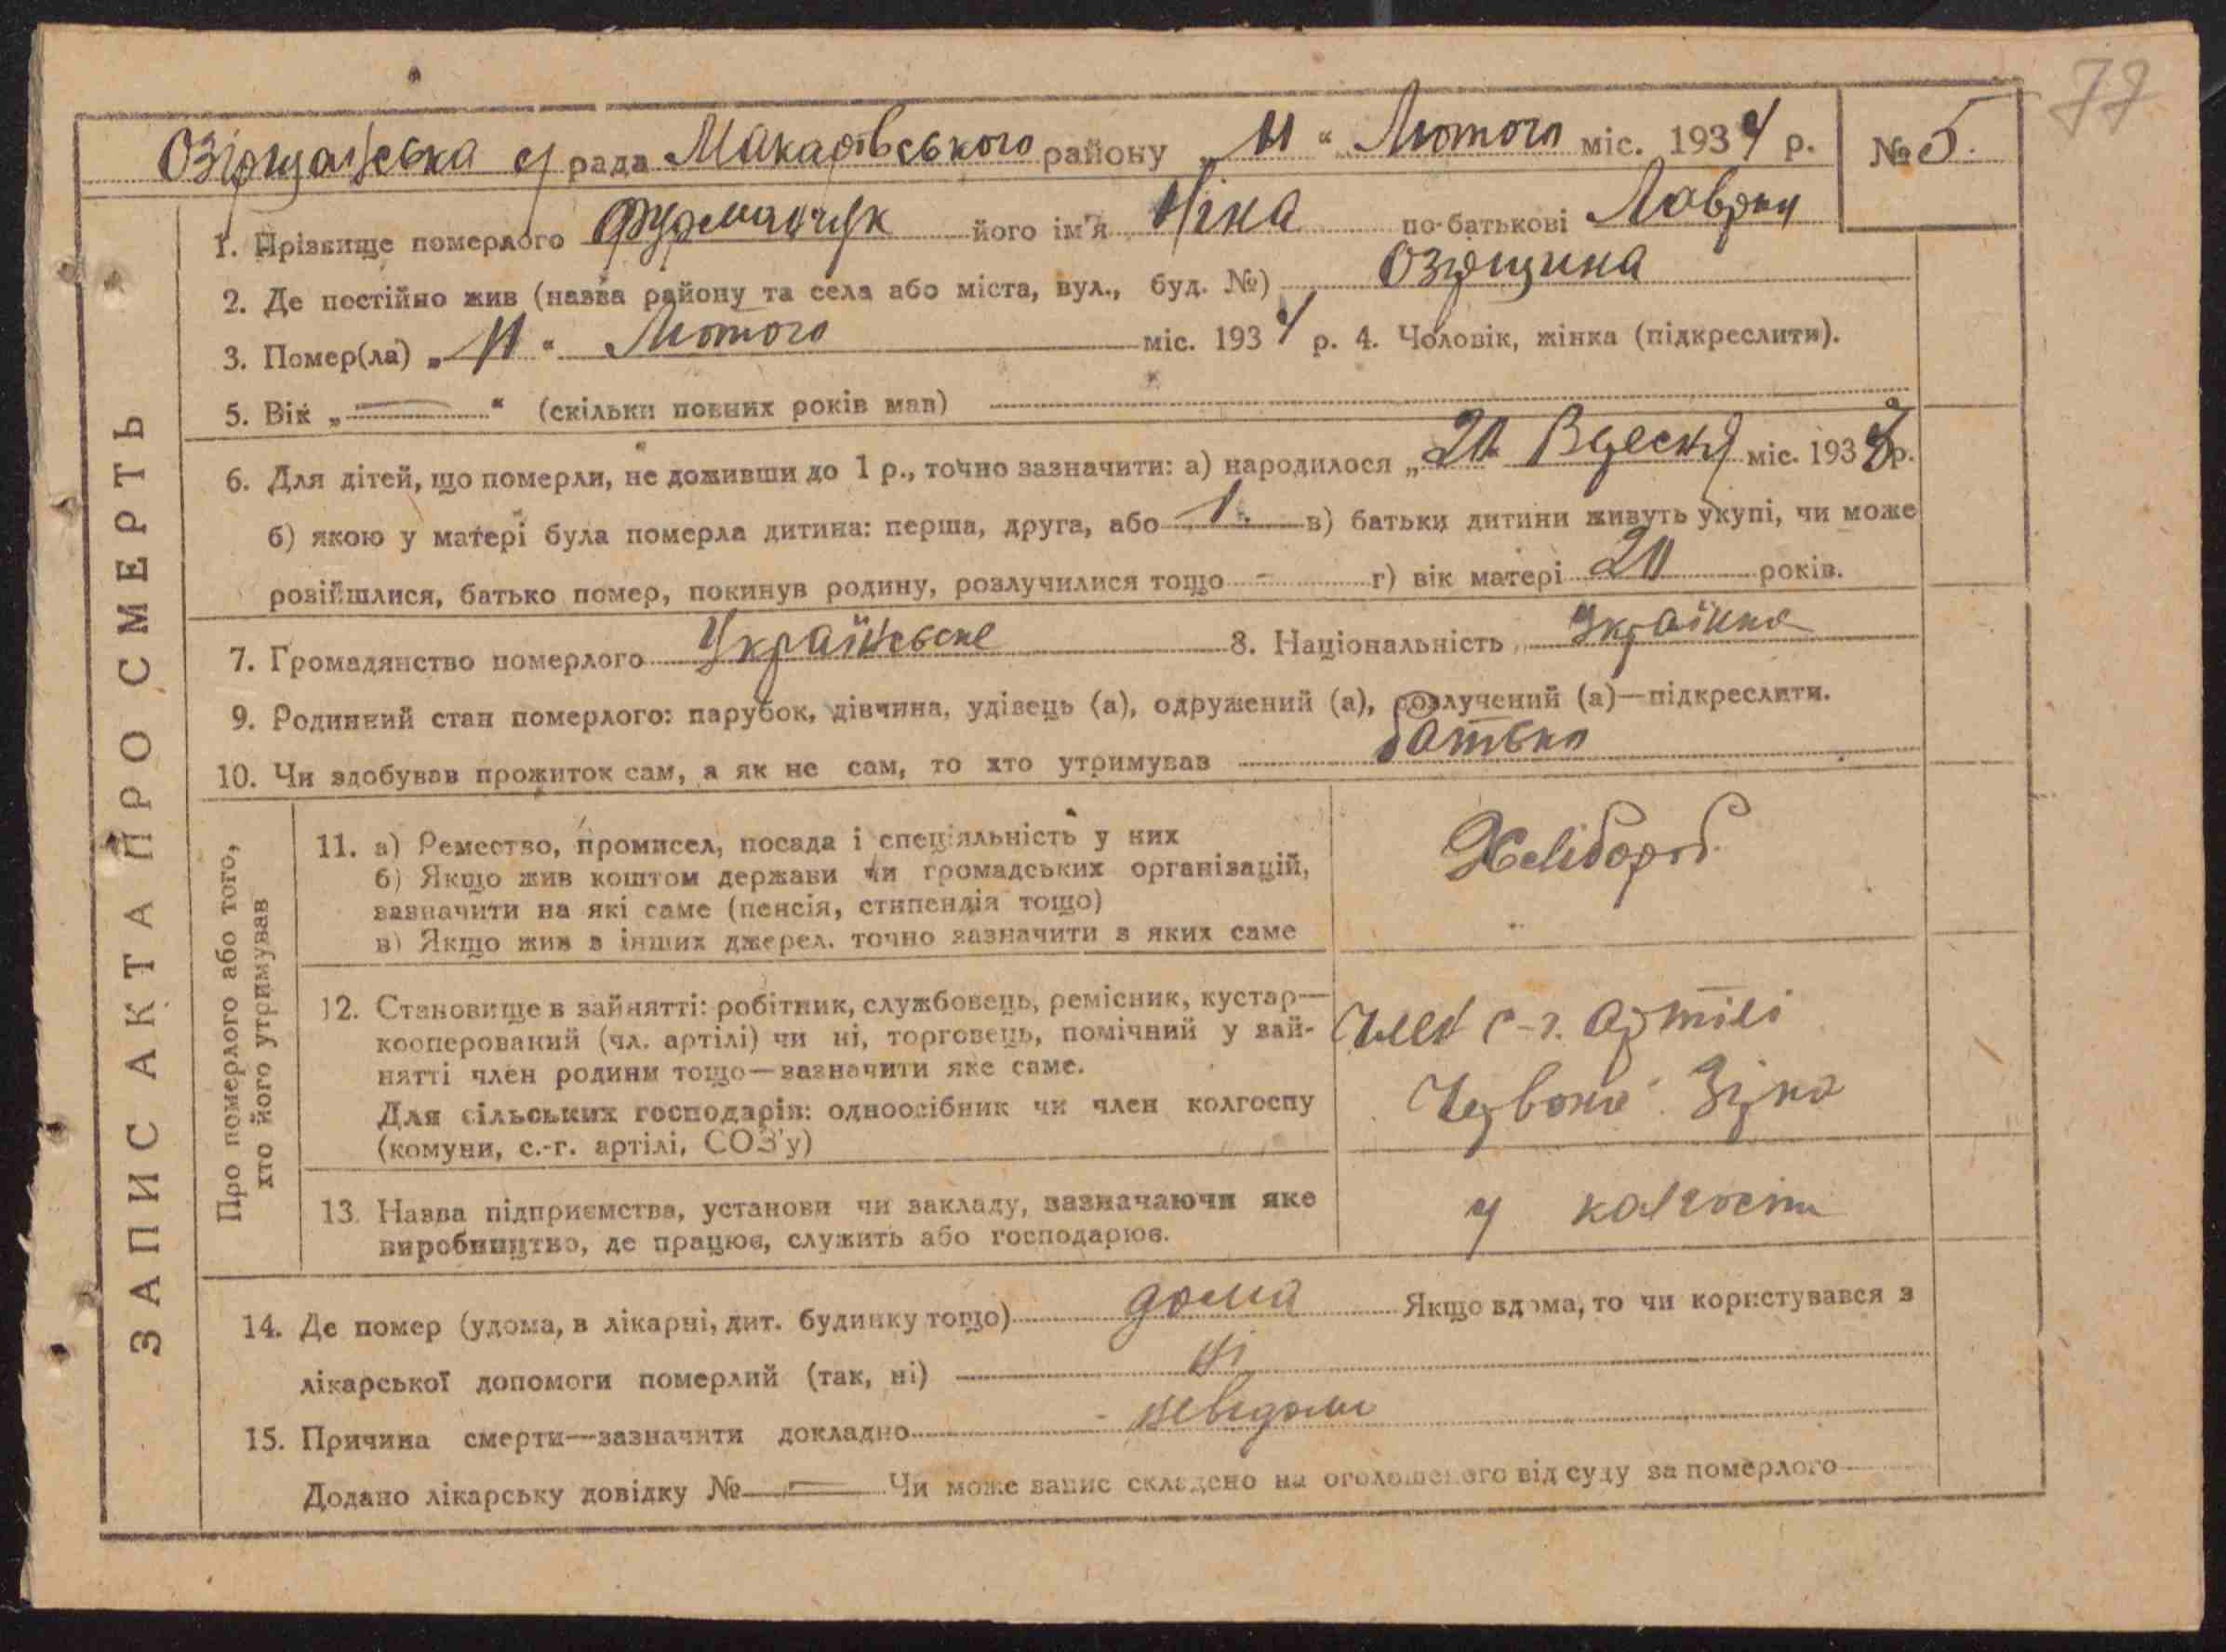 77
Озірщанська с рада Макарівського району „11“ Лютого міс. 1934 р. № 5.
1. Прізвище померлого Фурманчук його ім'я Ніна по-батькові Лаврин
2. Де постійно жив (назва району та села або міста, вул., буд. №) Озірщина
3. Помер(ла) „11“ Лютого міс. 1934 р. 4. Чоловік, жінка (підкреслити).
5. Вік „—“ (скільки повних років мав)
6. Для дітей, що померли, не доживши до 1 р., точно зазначити: а) народилося „20 міс. 193 р.
б) якою у матері була померла дитина: перша, друга, або 1. в) батьки дитини живуть укупі, чи може
розійшлися, батько помер, покинув родину, розлучилися тощо - г) вік матері 20 років.
7. Громадянство померлого Українське 8. Національність Українка
9. Родинний стан померлого: парубок, дівчина, удівець (а), одружений (а), розлучений (а)—підкреслити.
10. Чи здобував прожиток сам, а як не сам, то хто утримував батько
ЗАПИС АКТА ПРО СМЕРТЬ
Про померлого або того,
хто його утримував
11. а) Ремество, промисел, посада і спеціяльність у них
б) Якщо жив коштом держави чи громадських організацій,
зазначити на які саме (пенсія, стипендія тощо)
в) Якщо жив з інших джерел, точно зазначити з яких саме
Хлібороб.
12. Становище в зайнятті: робітник, службовець, ремісник, кустар—
кооперований (чл. артілі) чи ні, торговець, помічний у зай-
нятті член родини тощо—зазначити яке саме.
Для сільських господарів: одноосібник чи член колгоспу
(комуни, с.-г. артілі, СОЗ'у)
Член с-г. Артілі
Червона Зірка
13. Назва підприємства, установи чи закладу, зазначаючи яке
виробництво, де працює, служить або господарює.
у колгоспі
14. Де помер (удома, в лікарні, дит. будинку тощо) дома Якщо вдома, то чи користувався з
лікарської допомоги померлий (так, ні) ні
15. Причина смерти—зазначити докладно невідомо
Додано лікарську довідку № — Чи може запис складено на оголошеного від суду за померлого